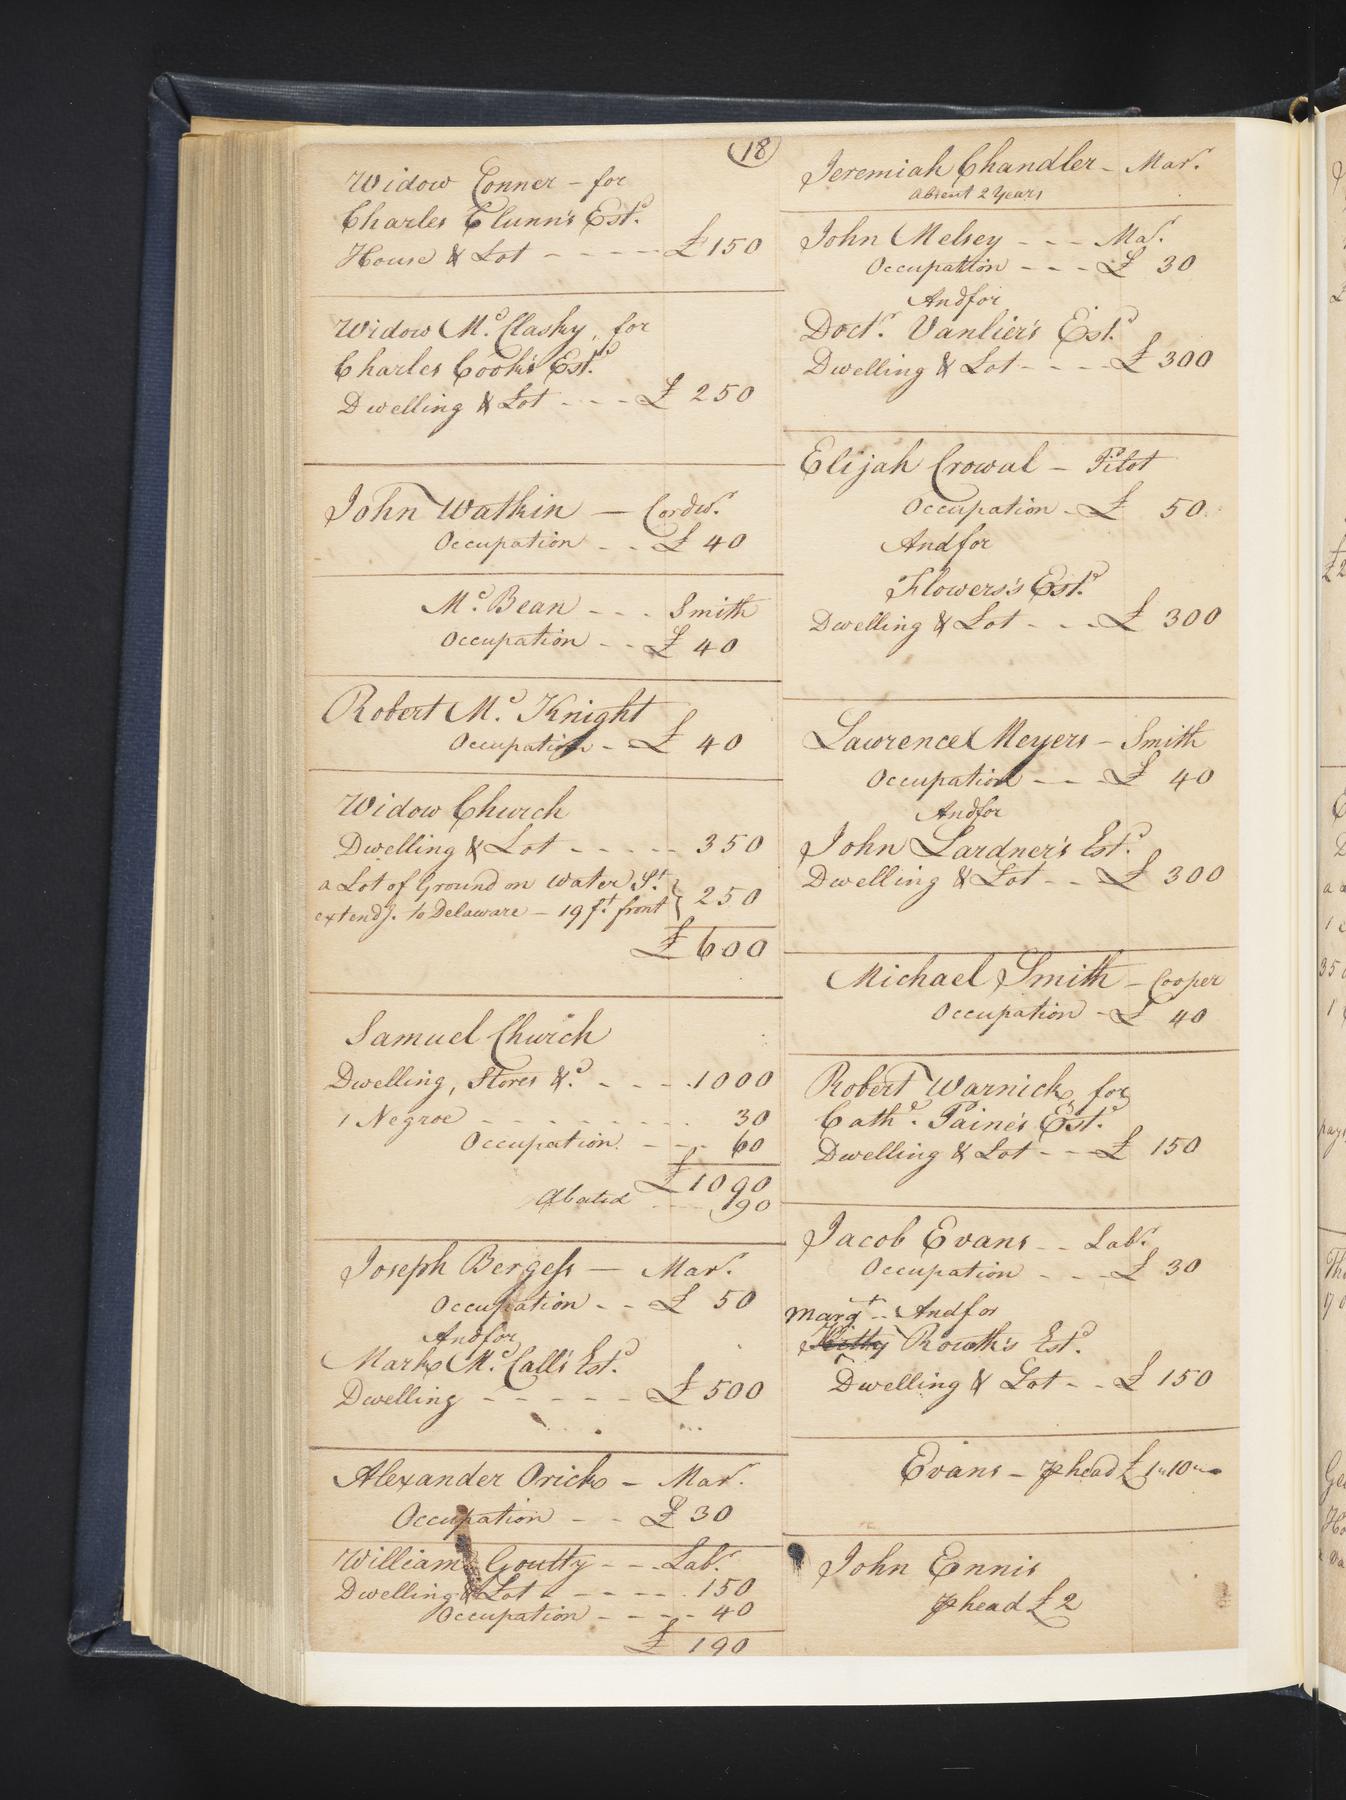 18
Widow Conner - for
Charles Clunn's Estd.
House & Lot - - - - - £150
Widow Mc. Clasky, for
Charles Cook's Estd.
Dwelling & Lot - - - £ 250
John Watkin — Cordwr.
Occupation - - £ 40
Mc. Bean - - - Smith
Occupation - - £ 40
Robert Mc. Knight
Occupation - £ 40
Widow Church
Dwelling & Lot - - - - - 350
a Lot of Ground on Water St. }
extendg. to Delaware - 19 ft. front } 250
£ 600
Samuel Church
Dwelling, Stores &c. - - - 1000
1 Negroe - - - - - - - - 30
Occupation - - - 60
£1090
Abated - - - 190
Joseph Bergess — Marr.
Occupation - - £ 50
And for
Mark Mc. Call's Estd.
Dwelling - - - - - - £ 500
Alexander Orick - Marr.
Occupation - - £ 30
William Goutty - - - Labr.
Dwelling & Lot - - - - - 150
Occupation - - - - 40
£ 190
Jeremiah Chandler - Marr.
absent 2 Years
John Melsey - - - Mar.
Occupation - - - £ 30
And for
Doctr. Vanlier's Estd.
Dwelling & Lot - - - - £ 300
Elijah Crowal - Pilot
Occupation - £ 50
And for
Flowers's Estd.
Dwelling & Lot - - - £ 300
Lawrence Meyers - Smith
Occupation - - - £ 40
And for
John Lardner's Estd.
Dwelling & Lot - - £ 300
Michael Smith - Cooper
Occupation - £ 40
Robert Warnick, for
Cathe. Paine's Estd.
Dwelling & Lot - - £ 150
Jacob Evans - - Labr.
Occupation - - - £ 30
Margt - - And for
Kitty Routh's Estd.
Dwelling & Lot - - £ 150
Evans - ⅌ head £ 1"10"-
John Ennis
⅌ head £ 2